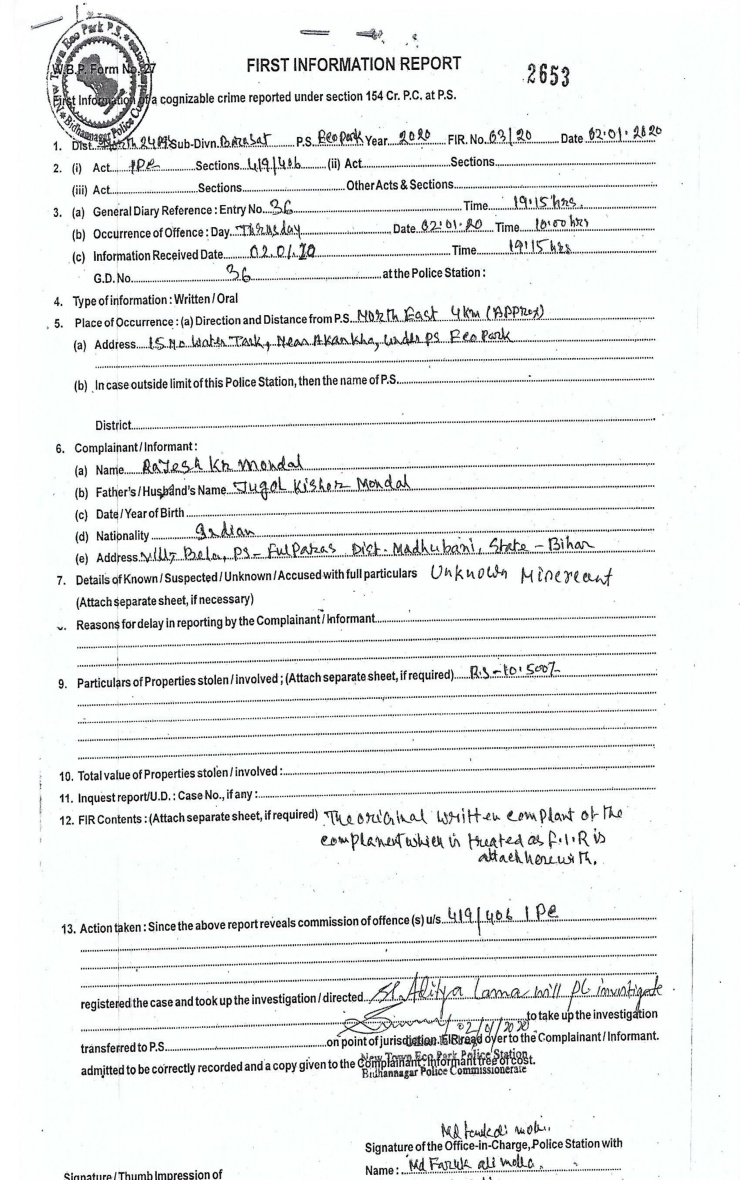 New Town Eco Park P.S.
Bidhannagar Police
W.B.P. Form No. 27
FIRST INFORMATION REPORT
2653
First Information of a cognizable crime reported under section 154 Cr. P.C. at P.S.
1. Dist. North 24 Sub-Divn. Barasat P.S. Eco Park Year 2020 FIR. No. 03/20 Date 02.01.2020
2. (i) Act IPC Sections 419/406 (ii) Act Sections
(iii) Act Sections Other Acts & Sections
3. (a) General Diary Reference : Entry No. 36 Time 19:15 hrs
(b) Occurrence of Offence : Day Thursday Date 02.01.20 Time 10:00 hrs
(c) Information Received Date 02.01.20 Time 19:15 hrs
G.D. No. 36 at the Police Station :
4. Type of information : Written / Oral
5. Place of Occurrence : (a) Direction and Distance from P.S. North East 4 km (Approx)
(a) Address 15 No Water Tank, Near Akankha, under PS Eco Park
(b) In case outside limit of this Police Station, then the name of P.S.
District
6. Complainant / Informant :
(a) Name Rajesh Kr Mondal
(b) Father's / Husband's Name Jugol Kishor Mondal
(c) Date / Year of Birth
(d) Nationality Indian
(e) Address Bela, PS - FulParas Dist - Madhubani, State - Bihar
7. Details of Known / Suspected / Unknown / Accused with full particulars Unknown Mincreant
(Attach separate sheet, if necessary)
Reasons for delay in reporting by the Complainant / Informant
9. Particulars of Properties stolen / involved ; (Attach separate sheet, if required) RS - 10.500/-
10. Total value of Properties stolen / involved :
11. Inquest report / U.D. : Case No., if any :
12. FIR Contents : (Attach separate sheet, if required) The original written complant of the
complanent which is treated as F.I.R is
attach herewith.
13. Action taken : Since the above report reveals commission of offence (s) u/s 419/406 IPC
registered the case and took up the investigation / directed SI. Aditya Lama will pl investigate
02/01/2020 to take up the investigation
transferred to P.S. on point of jurisdiction. FIR read over to the Complainant / Informant.
admitted to be correctly recorded and a copy given to the Complainant / Informant free of cost.
New Town Eco Park Police Station
Bidhannagar Police Commissionerate
Signature of the Office-in-Charge, Police Station with
Name : Md Faruk ali molla
Signature / Thumb Impression of